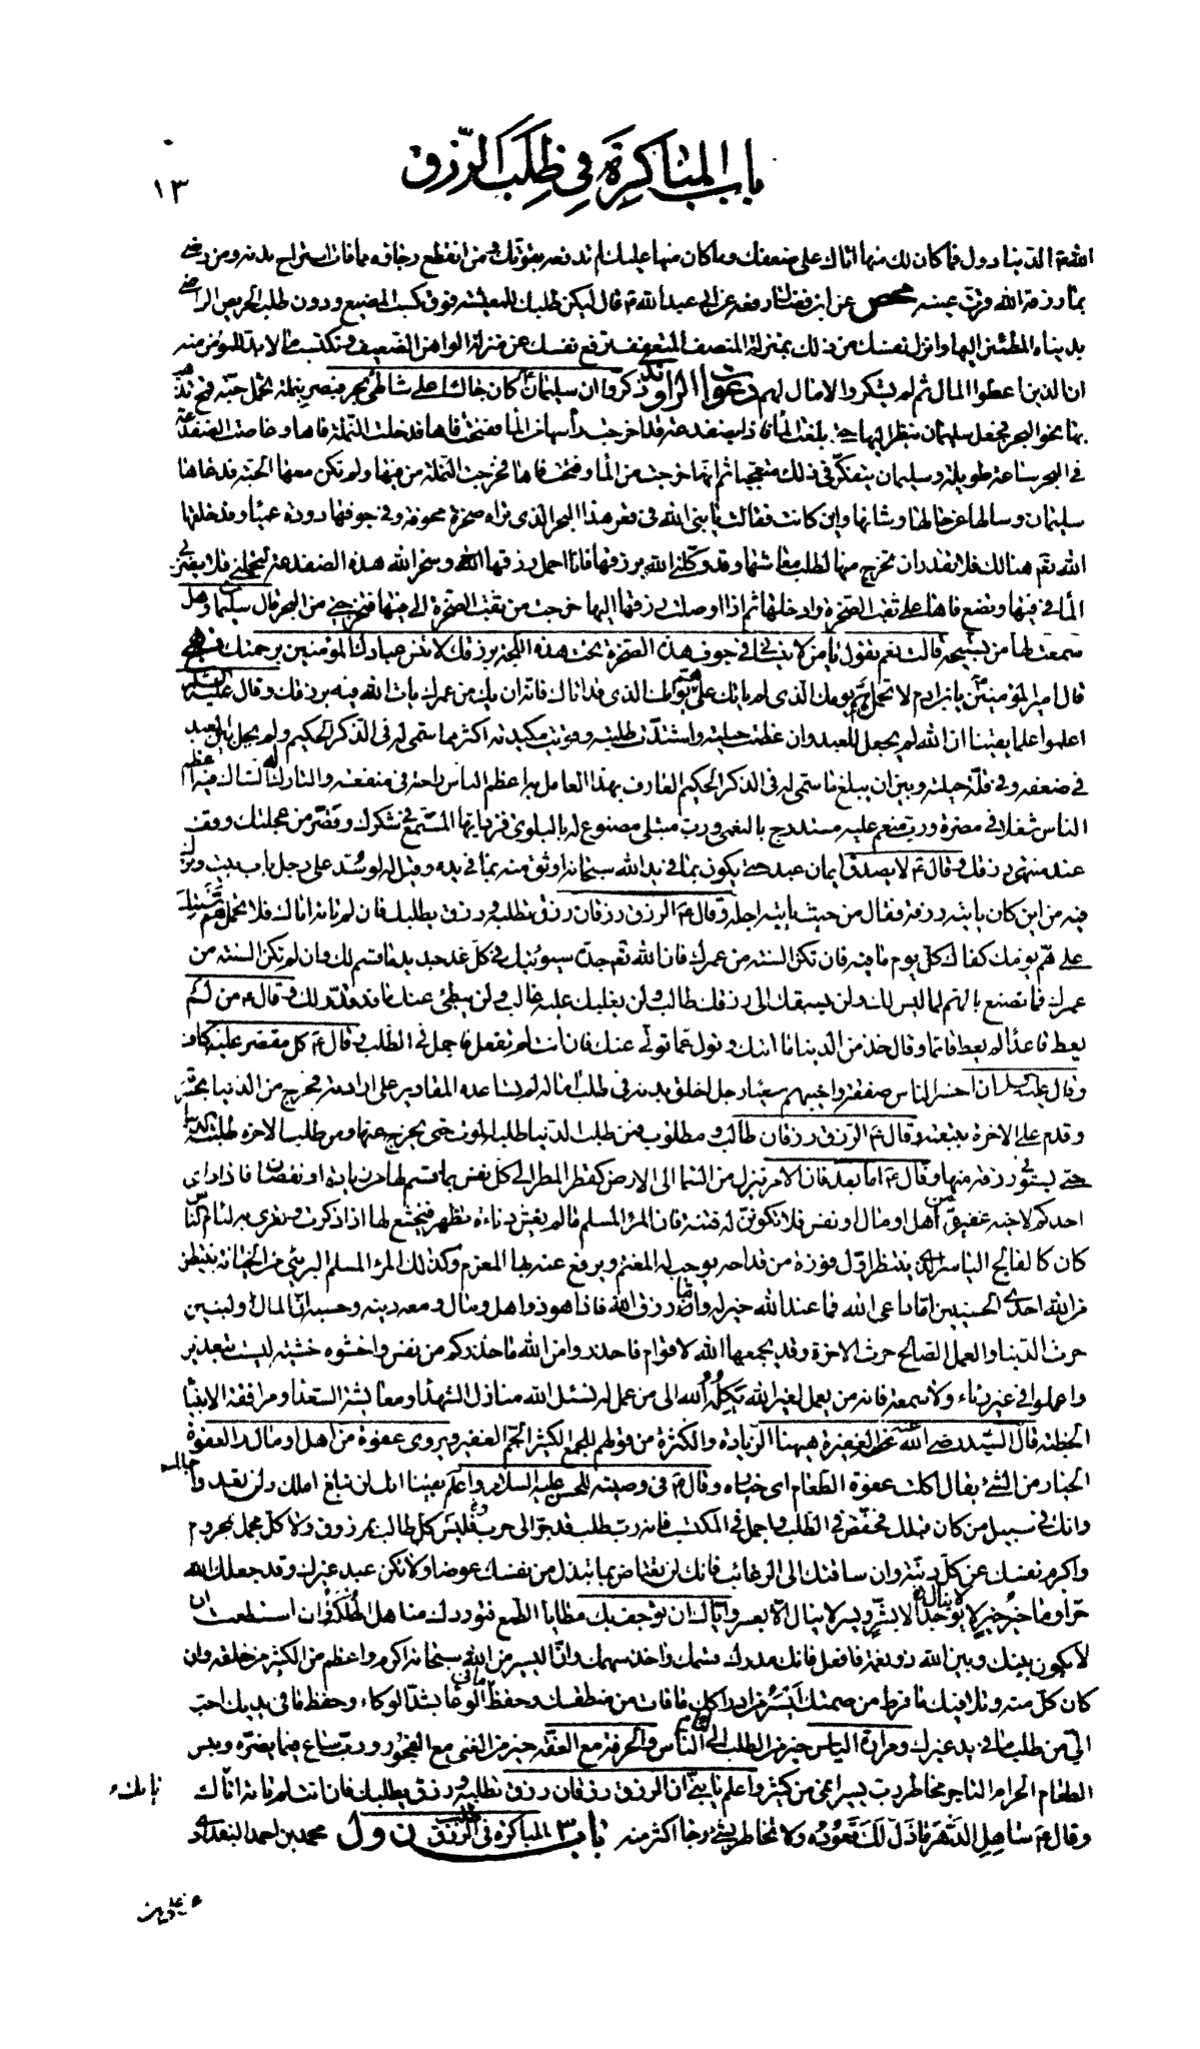 باب المباكرة في طلب الرزق
١٣
الله الدنيا دول فما كان لك منها اتاك على ضعفك وما كان منها عليك لم تدفعه بقوتك ومن انقطع رجاؤه مما فات استراح بدنه ومن رضي
بما رزقه الله قرت عينه محص عن ابن فضال رفعه عن ابي عبد الله ع قال ليكن طلبك المعيشة فوق كسب المضيع ودون طلب الحريص الراضي
بدنياه المطمئن اليها وانزل نفسك من ذلك بمنزلة المنصف المتعفف ترفع نفسك عن منزلة الواهن الضعيف وتكتسب ما لا بد للمؤمن منه
ان الذين اعطوا المال ثم لم يشكروا لا مال لهم دعوات الراوندي ذكروا ان سليمان ع كان جالسا على شاطئ بحر فبصر بنملة تحمل حبة قمح تذهب
بها نحو البحر فجعل سليمان ينظر اليها حتى بلغت الماء فاذا بضفدعة قد اخرجت رأسها من الماء ففتحت فاها فدخلت النملة فاها وغاصت الضفدعة
في البحر ساعة طويلة وسليمان يتفكر في ذلك متعجبا ثم انها خرجت من الماء وفتحت فاها فخرجت النملة من فيها ولم تكن معها الحبة فدعاها
سليمان وسالها عن حالها وشانها واين كانت فقالت يا نبي الله في قعر هذا البحر الذي تراه صخرة مجوفة وفي جوفها دودة عمياء وقد خلقها
الله تعم هنالك فلا تقدر ان تخرج منها لطلب معاشها وقد وكلني الله برزقها فانا احمل رزقها وسخر الله هذه الضفدعة لتحملني فلا يضرني
الماء في فيها وتضع فاها على ثقب الصخرة وادخلها ثم اذا اوصلت رزقها اليها خرجت من ثقب الصخرة الى فيها فتخرجني من البحر قال سليمان وهل
سمعت لها من تسبيحة قالت نعم تقول يا من لا ينساني في جوف هذه الصخرة تحت هذه اللجة برزقك لا تنس عبادك المؤمنين برحمتك نهج
قال امير المؤمنين ع يا بن ادم لا تحمل هم يومك الذي لم ياتك على يومك الذي قد اتاك فانه ان يك من عمرك يات الله فيه برزقك وقال عليه السلم
اعلموا علما يقينا ان الله لم يجعل للعبد وان عظمت حيلته واشتدت طلبته وقويت مكيدته اكثر مما سمى له في الذكر الحكيم ولم يحل بين العبد
في ضعفه وفي قلة حيلته وبين ان يبلغ ما سمى له في الذكر الحكيم العارف بهذا العامل به اعظم الناس راحة في منفعة والتارك له الشاك فيه اعظم
الناس شغلا في مضرة ورب منعم عليه مستدرج بالنعمى ورب مبتلى مصنوع له بالبلوى فزد ايها المستمع في شكرك وقصر من عجلتك وقف
عند منتهى رزقك وقال ع لا يصدق ايمان عبد حتى يكون بما في يد الله سبحانه اوثق منه بما في يده وقيل له لو سد على رجل باب بيت وترك
فيه من اين كان ياتيه رزقه فقال من حيث ياتيه اجله وقال ع الرزق رزقان رزق تطلبه ورزق يطلبك فان لم تاته اتاك فلا تحمل هم سنتك
على هم يومك كفاك كل يوم ما فيه فان تكن السنة من عمرك فان الله تعم جده سيؤتيك في كل غد جديد ما قسم لك وان لم تكن السنة من
عمرك فما تصنع بالهم لما ليس لك ولن يسبقك الى رزقك طالب ولن يغلبك عليه غالب ولن يبطئ عنك ما قد قدر لك وقال ع من لم
يعط قاعدا لم يعط قائما وقال خذ من الدنيا ما اتاك وتول عما تولى عنك فان انت لم تفعل فاجمل في الطلب وقال ع كل مقتصر عليه كاف
وقال ع ان اخسر الناس صفقة واخيبهم سعيا رجل اخلق بدنه في طلب اماله ولم تساعده المقادير على ارادته فخرج من الدنيا بحسرته
وقدم على الاخرة بتبعته وقال ع الرزق رزقان طالب ومطلوب فمن طلب الدنيا طلبه الموت حتى يخرجه عنها ومن طلب الاخرة طلبته الدنيا
حتى يستوفي رزقه منها وقال ع اما بعد فان الامر ينزل من السماء الى الارض كقطر المطر الى كل نفس بما قسم لها من زيادة او نقصان فاذا راى
احدكم لاخيه غفيرة في اهل او مال او نفس فلا تكونن له فتنة فان المرء المسلم ما لم يغش دناءة تظهر فيخشع لها اذا ذكرت وتغرى به لئام الناس
كان كالفالج الياسر الذي ينتظر اول فوزة من قداحه توجب له المغنم ويرفع عنه بها المغرم وكذلك المرء المسلم البريء من الخيانة ينتظر
من الله احدى الحسنيين اما داعي الله فما عند الله خير له واما رزق الله فاذا هو ذو اهل ومال ومعه دينه وحسبه ان المال والبنين
حرث الدنيا والعمل الصالح حرث الاخرة وقد يجمعهما الله لاقوام فاحذروا من الله ما حذركم من نفسه واخشوه خشية ليست بتعذير
واعملوا في غير رياء ولا سمعة فانه من يعمل لغير الله يكله الله الى من عمل له نسئل الله منازل الشهداء ومعايشة السعداء ومرافقة الانبياء
الخطبة قال السيد رضي الله عنه الغفيرة ههنا الزيادة والكثرة من قولهم للجمع الكثير الجم الغفير ويروى عفوة من اهل او مال والعفوة
الخيار من الشيء يقال اكلت عفوة الطعام اى خياره وقال ع في وصيته للحسن عليه السلام واعلم يقينا انك لن تبلغ املك ولن تعدو اجلك
وانك في سبيل من كان قبلك فخفض في الطلب واجمل في المكتسب فانه رب طلب قد جر الى حرب فليس كل طالب بمرزوق ولا كل مجمل بمحروم
واكرم نفسك عن كل دنية وان ساقتك الى الرغائب فانك لن تعتاض بما تبذل من نفسك عوضا ولا تكن عبد غيرك وقد جعلك الله
حرا وما خير خير لا يوجد الا بشر ويسر لا ينال الا بعسر واياك ان توجف بك مطايا الطمع فتوردك مناهل الهلكة وان استطعت ان
لا يكون بينك وبين الله ذو نعمة فافعل فانك مدرك قسمك واخذ سهمك وان اليسير من الله سبحانه اكرم واعظم من الكثير من خلقه وان
كان كل منه وتلافيك ما فرط من صمتك ايسر من ادراك ما فات من منطقك وحفظ ما في الوعاء بشد الوكاء وحفظ ما في يديك احب
الي من طلب ما في يد غيرك ومرارة الياس خير من الطلب الى الناس والحرفة مع العفة خير من الغنى مع الفجور ورب ساع فيما يضره وبئس
الطعام الحرام التاجر مخاطر رب يسير انمى من كثير واعلم يا بني ان الرزق رزقان رزق تطلبه ورزق يطلبك فان انت لم تاته اتاك
وقال ع ساهل الدهر ما ذل لك قعوده ولا تخاطر بشيء رجاء اكثر منه باب ٣ المباكرة في طلب الرزق ن ول محمد بن احمد البغدادي